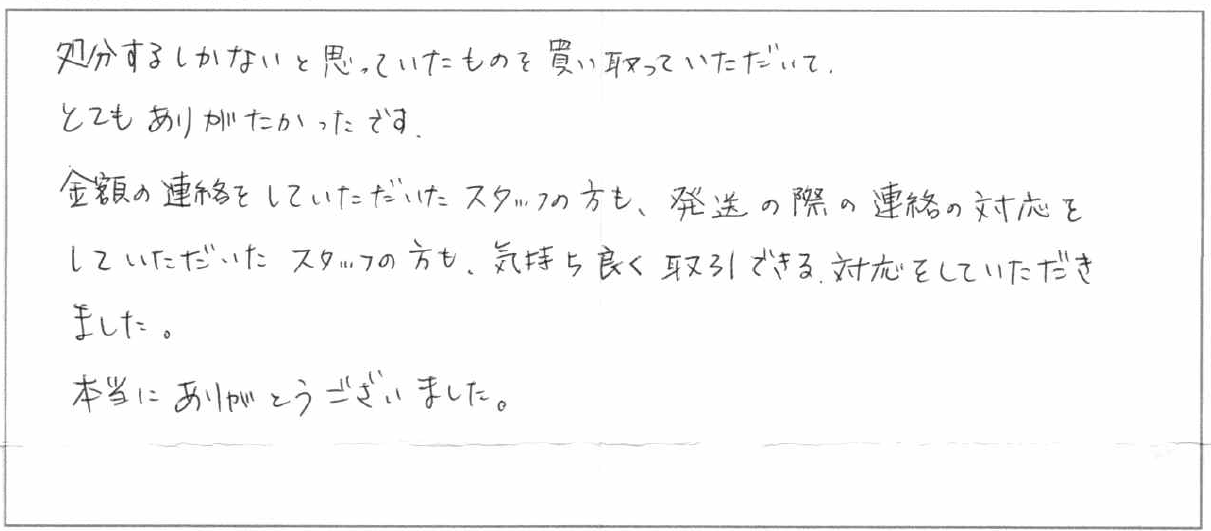 処分するしかないと思っていたものを買い取っていただいて、
とてもありがたかったです。
金額の連絡をしていただいたスタッフの方も、発送の際の連絡の対応を
していただいたスタッフの方も、気持ち良く取引できる、対応をしていただき
ました。
本当にありがとうございました。